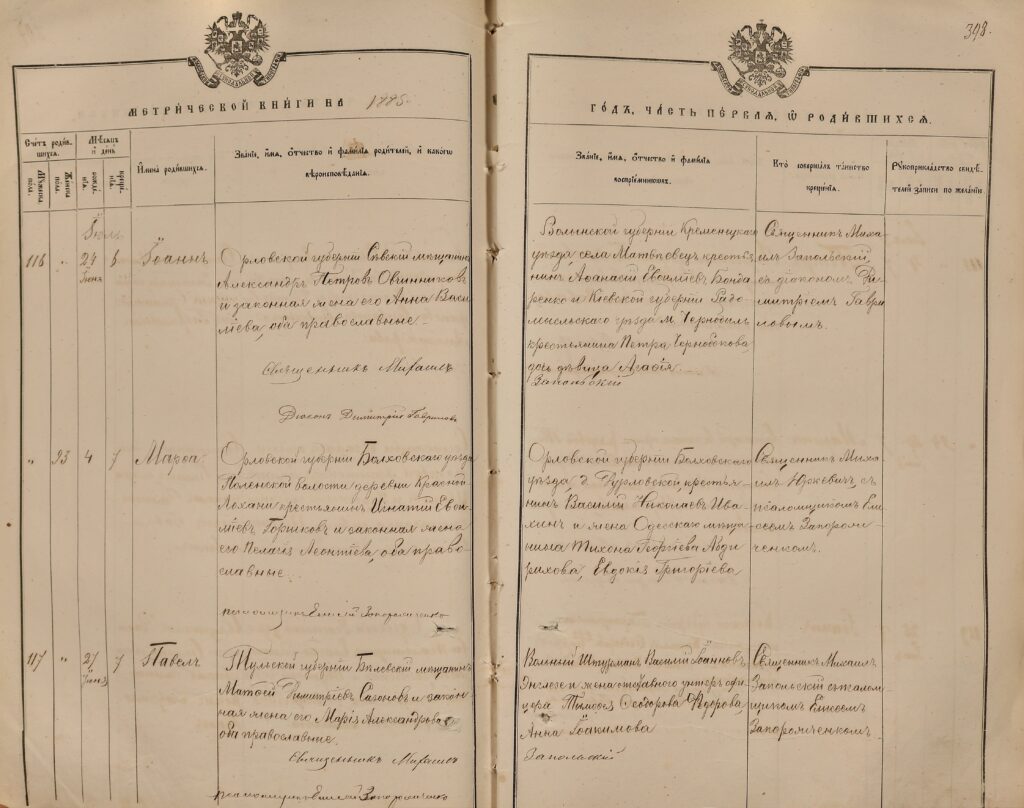 398.
МЕТРИЧЕСКОЙ КНИГИ НА 1885
ГОДЪ, ЧАСТЬ ПЕРВАЯ, Ѡ РОДИВШИХСЯ.
Счётъ родив-
шихся.
Мѣсяцъ
и день
Имена родившихся.
Званіе, имя, отчество и фамилія родителей, и какого
вѣроисповѣданія.
Званіе, имя, отчество и фамилія
воспріемниковъ.
Кто совершалъ таинство
крещенія.
Рукоприкладство свидѣ-
телей записи по желанію.
Мужеска
пола.
Женска
пола.
рожде-
нія.
креще-
нія.
Іюль
116 „ 24 6 Іоаннъ
Іюня
Орловской губерніи Сѣвскій мѣщанинъ
Александръ Петровъ Овчинниковъ
и законная жена его Анна Васи
ліева, оба православные.
Священникъ Михаилъ
Діаконъ Димитрій Гавриловъ
Волынской губерніи Кременецкаго
уѣзда, села Матвѣевецъ, крестья
нинъ Аѳанасій Евѳиміевъ Бонда
ренко и Кіевской губерніи Радо
мысльскаго уѣзда м. Чернобыль
крестьянина Петра Чернобокова,
дочь дѣвица Агаѳія.
Запольскій
Священникъ Миха
илъ Запольскій,
съ діакономъ Ди
митріемъ Гаври
ловымъ.
„ 93 4 7 Марѳа.
Орловской губерніи Болховскаго уѣзда
деревни Красной
крестьянинъ Игнатій Евѳи
міевъ Горшковъ и законная жена
его Пелагія Леонтіева, оба право-
славные.
псаломщикъ Елисей Запорожченко
Орловской губерніи Болховскаго
уѣзда, д. крестья-
нинъ Василій Николаевъ Ива
и жена Одесскаго мѣща
нина Тихона Георгіева
Евдокія Григоріева
Священникъ Миха
илъ Юркевичъ, съ
псаломщикомъ Ели
сеемъ Запорож-
ченкомъ.
117 „ 27 7 Павелъ
Іюня
Тульской губерніи Бѣлевскій мѣщанинъ
Матѳей Димитріевъ Сазоновъ и закон
ная жена его Марія Александрова
оба православные.
Священникъ Михаилъ
псаломщикъ Елисей Запорожченко
Вольный Штурманъ Василій Іоанновъ
Энглезе и жена отставного унтеръ офи
цера Тимоѳея Ѳеодорова Ѳедорова,
Анна Іоакимова
Запольскій
Священникъ Михаилъ
Запольскій съ псалом
щикомъ Елисеемъ
Запорожченкомъ